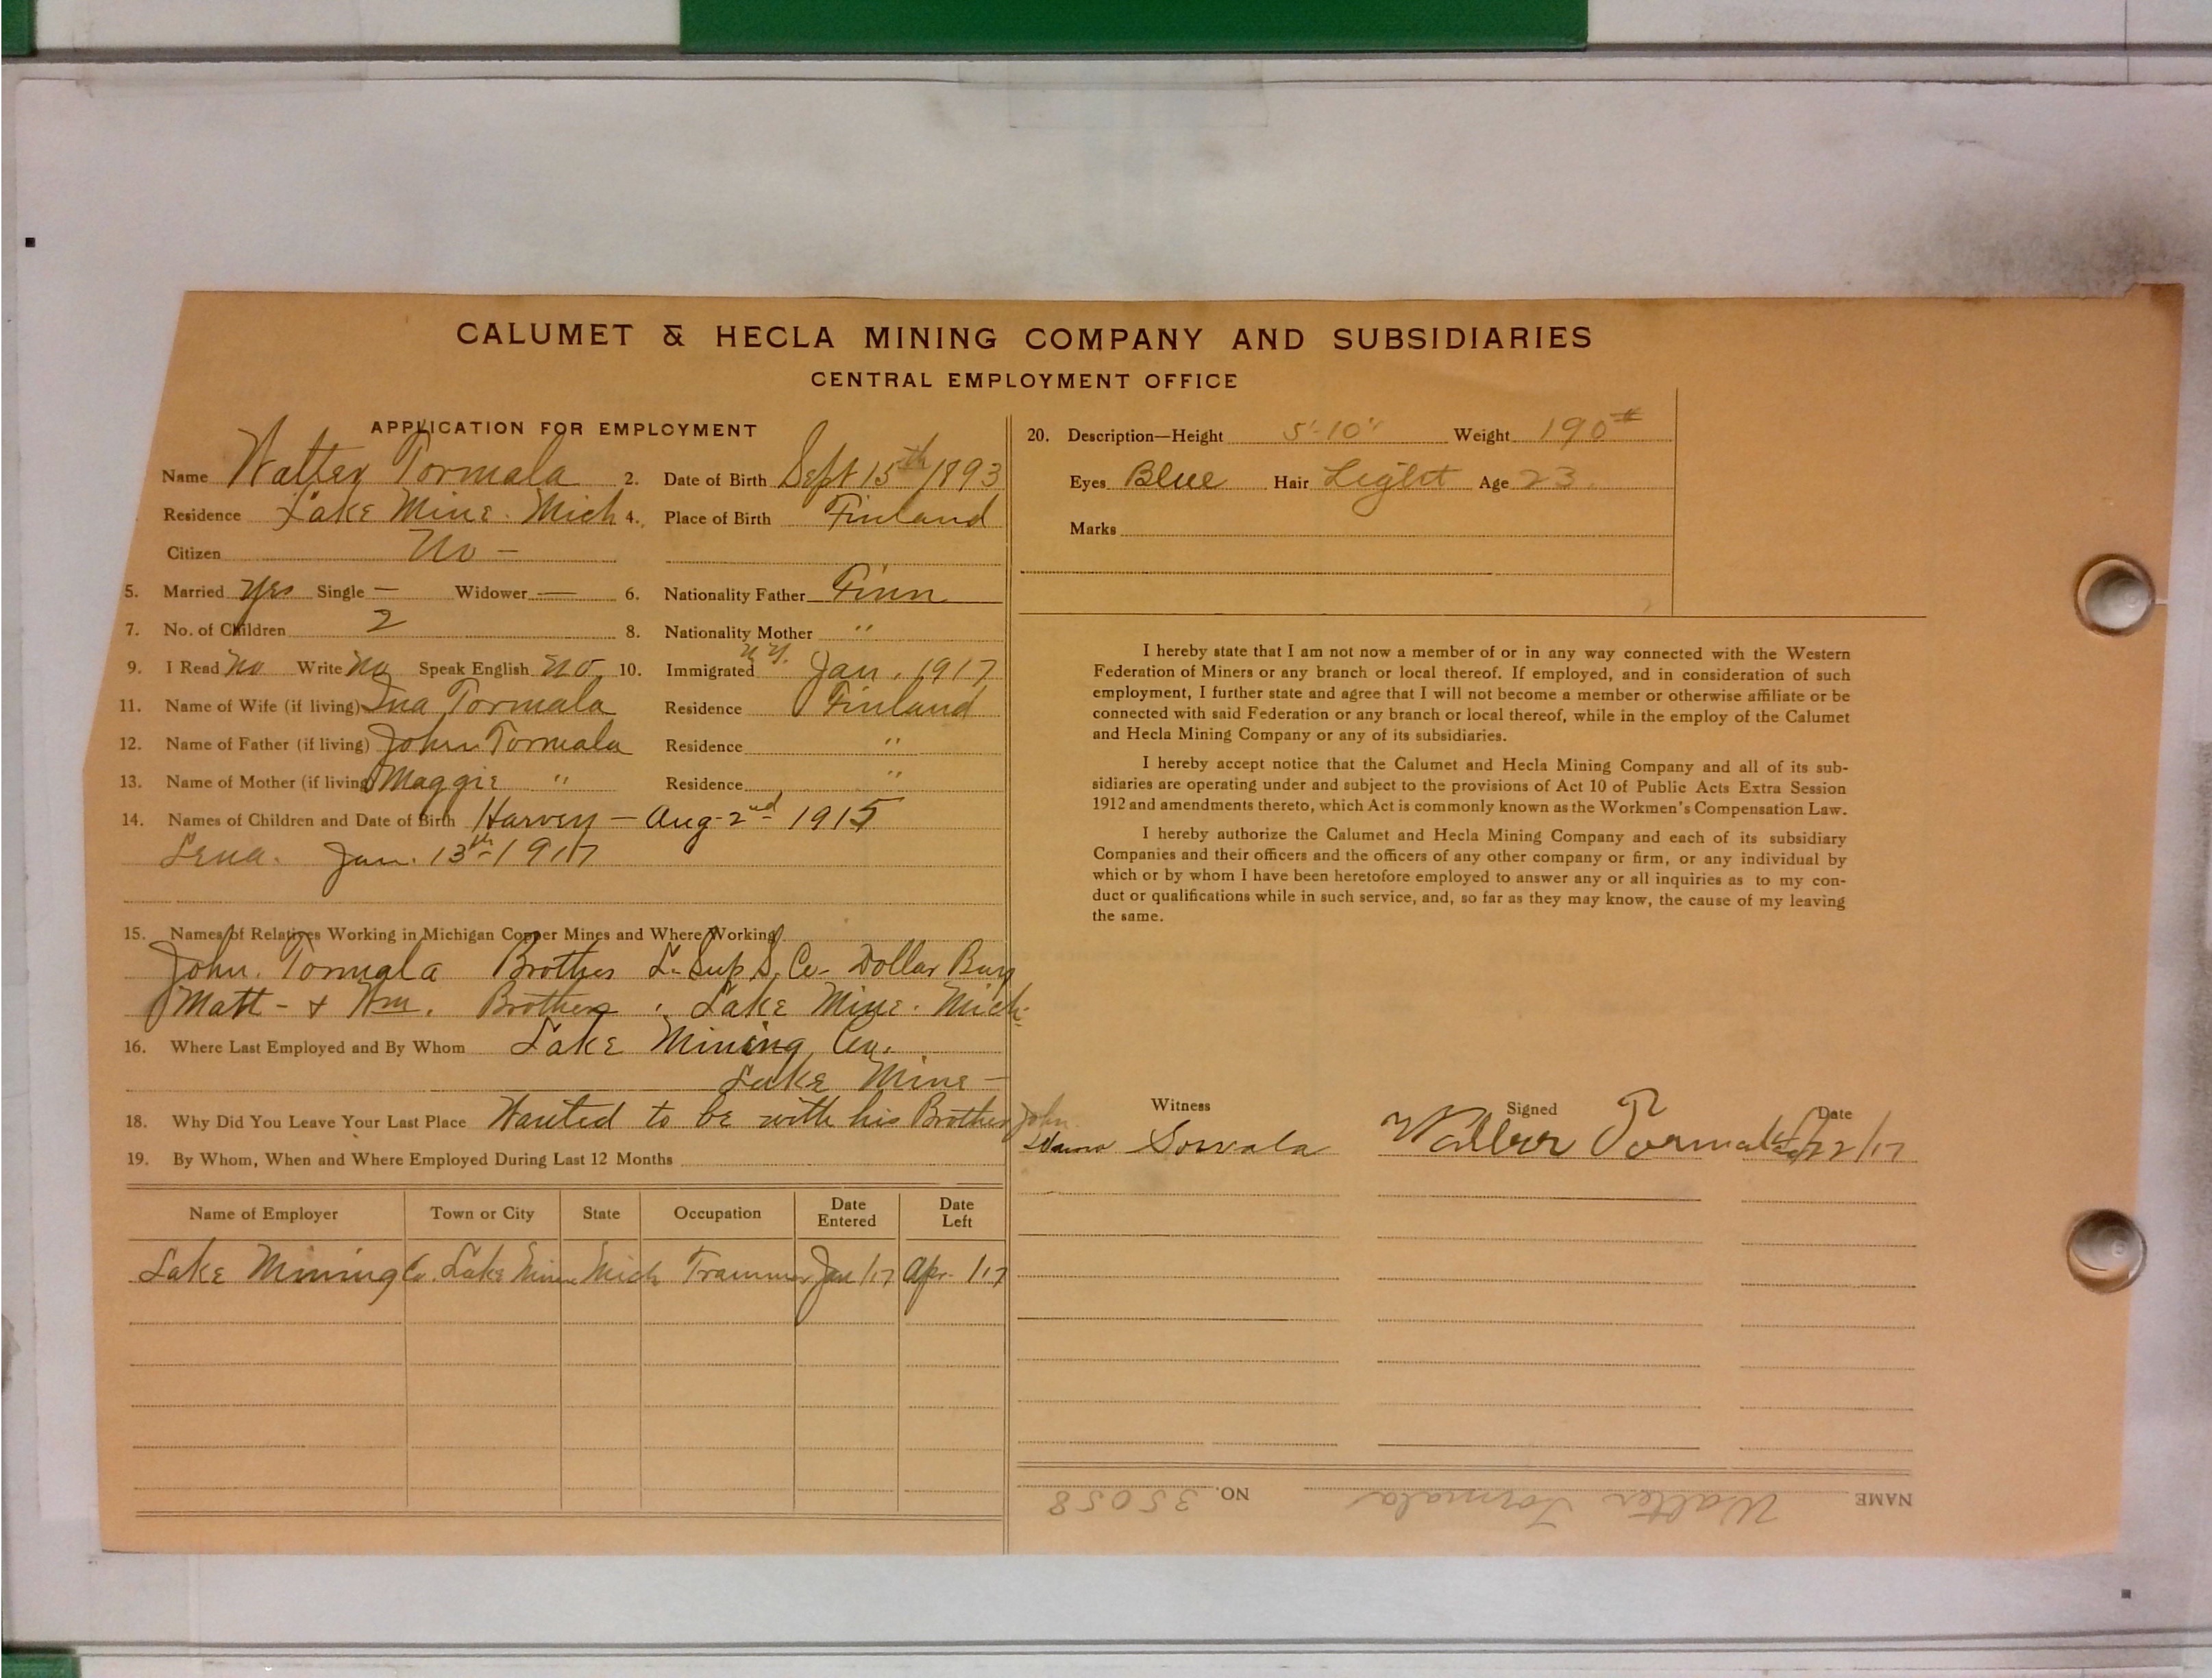 CALUMET & HECLA MINING COMPANY AND SUBSIDIARIES
CENTRAL EMPLOYMENT OFFICE
APPLICATION FOR EMPLOYMENT
Name Walter Tormala 2. Date of Birth Sept 15th 1893
Residence Lake Mine. Mich 4. Place of Birth Finland
Citizen No —
5. Married yes Single — Widower — 6. Nationality Father Finn
7. No. of Children 2 8. Nationality Mother "
9. I Read No Write No Speak English No 10. Immigrated N.Y. Jan. 1917
11. Name of Wife (if living) Ina Tormala Residence Finland
12. Name of Father (if living) John Tormala Residence "
13. Name of Mother (if living) Maggie " Residence "
14. Names of Children and Date of Birth Harvey — Aug-2nd 1915
Lena. Jan. 13th-1917
15. Names of Relatives Working in Michigan Copper Mines and Where Working
John. Tormala Brother L. Sup S. Co- Dollar Bay
Matt - & Wm. Brothers . Lake Mine. Mich.
16. Where Last Employed and By Whom Lake Mining Co.
Lake Mine —
18. Why Did You Leave Your Last Place Wanted to be with his Brother John.
19. By Whom, When and Where Employed During Last 12 Months
Name of Employer Town or City State Occupation Date Entered Date Left
Lake Mining Co. Lake Mine Mich Trammer Jan/17 Apr 1/17
20. Description—Height 5'-10" Weight 190#
Eyes Blue Hair Light Age 23.
Marks
I hereby state that I am not now a member of or in any way connected with the Western
Federation of Miners or any branch or local thereof. If employed, and in consideration of such
employment, I further state and agree that I will not become a member or otherwise affiliate or be
connected with said Federation or any branch or local thereof, while in the employ of the Calumet
and Hecla Mining Company or any of its subsidiaries.
I hereby accept notice that the Calumet and Hecla Mining Company and all of its sub-
sidiaries are operating under and subject to the provisions of Act 10 of Public Acts Extra Session
1912 and amendments thereto, which Act is commonly known as the Workmen's Compensation Law.
I hereby authorize the Calumet and Hecla Mining Company and each of its subsidiary
Companies and their officers and the officers of any other company or firm, or any individual by
which or by whom I have been heretofore employed to answer any or all inquiries as to my con-
duct or qualifications while in such service, and, so far as they may know, the cause of my leaving
the same.
Witness Signed Date
Sorvala Walter Tormala 22/17
NAME Walter Tormala NO. 35058